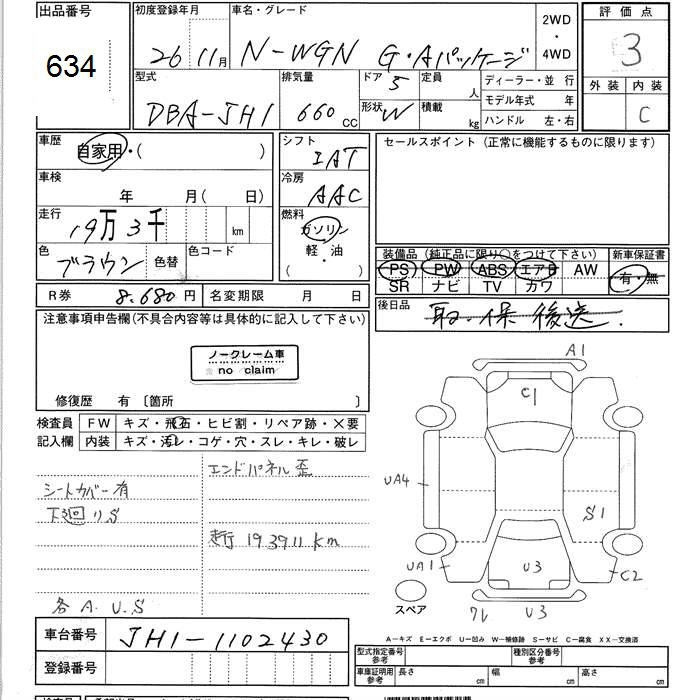 出品番号 初度登録年月 車名・グレード 2WD・4WD 評価点
634 26 11月 N-WGN G・Aパッケージ 3
型式 排気量 ドア 5 定員 人 ディーラー・並行 外装 内装
DBA-JH1 660 CC 形状 W 積載 kg モデル年式 年 C
ハンドル 左・右
車歴 自家用・( ) シフト IAT セールスポイント (正常に機能するものに限ります)
車検 年 月(日) 冷房 AAC
走行 19万3千 km 燃料 ガソリン
色 ブラウン 色替 色コード 軽・油 ( )
装備品 (純正品に限り○をつけて下さい) 新車保証書
PS PW ABS エアB AW 有・無
SR ナビ TV カワ
R券 8,680円 名変期限 月 日 後日品 取・保 後送.
注意事項申告欄(不具合内容等は具体的に記入して下さい)
ノークレーム車
no claim
修復歴 有 〔箇所 〕
検査員記入欄 FW キズ・飛石・ヒビ割・リペア跡・×要
内装 キズ・汚レ・コゲ・穴・スレ・キレ・破レ
エンドパネル歪
シートカバー有
下廻りS
走行 193911km
各A.U.S
A1
C1
UA4
S1
UA1
U3
C2
スペア
ワレ U3
A－キズ E－エクボ U－凹み W－補修跡 S－サビ C－腐食 XX－交換済
車台番号 JH1-1102430
型式指定番号 参考 種別区分番号 参考
登録番号 車庫証明用 参考 長さ cm 幅 cm 高さ cm